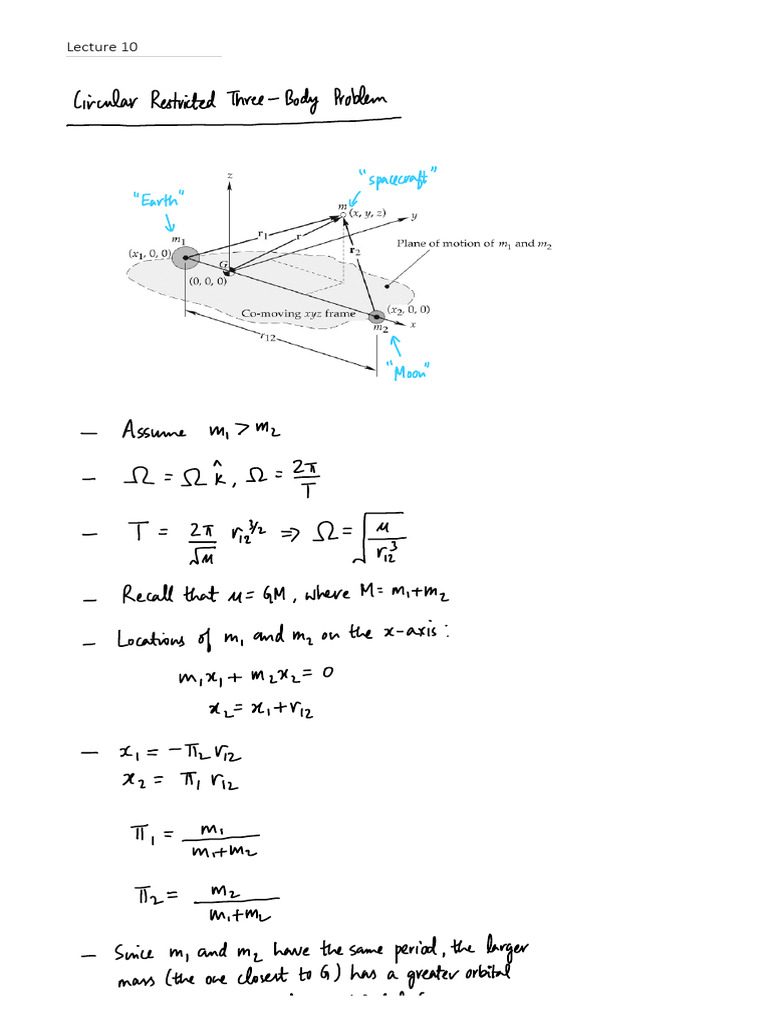 Lecture 10
Circular Restricted Three-Body Problem
z
"spacecraft"
"Earth"
m
(x, y, z)
y
m₁
r₁
r
r₂
Plane of motion of m₁ and m₂
(x₁, 0, 0)
G
(0, 0, 0)
Co-moving xyz frame
(x₂, 0, 0)
x
m₂
r₁₂
"Moon"
– Assume m₁ > m₂
– Ω = Ω k̂, Ω = 2π/T
– T = 2π/√μ r₁₂^3/2 ⇒ Ω = √(μ/r₁₂³)
– Recall that μ = GM, where M = m₁+m₂
– Locations of m₁ and m₂ on the x-axis:
m₁x₁ + m₂x₂ = 0
x₂ = x₁ + r₁₂
– x₁ = -π₂ r₁₂
x₂ = π₁ r₁₂
π₁ = m₁/(m₁+m₂)
π₂ = m₂/(m₁+m₂)
– Since m₁ and m₂ have the same period, the larger
mass (the one closest to G) has a greater orbital